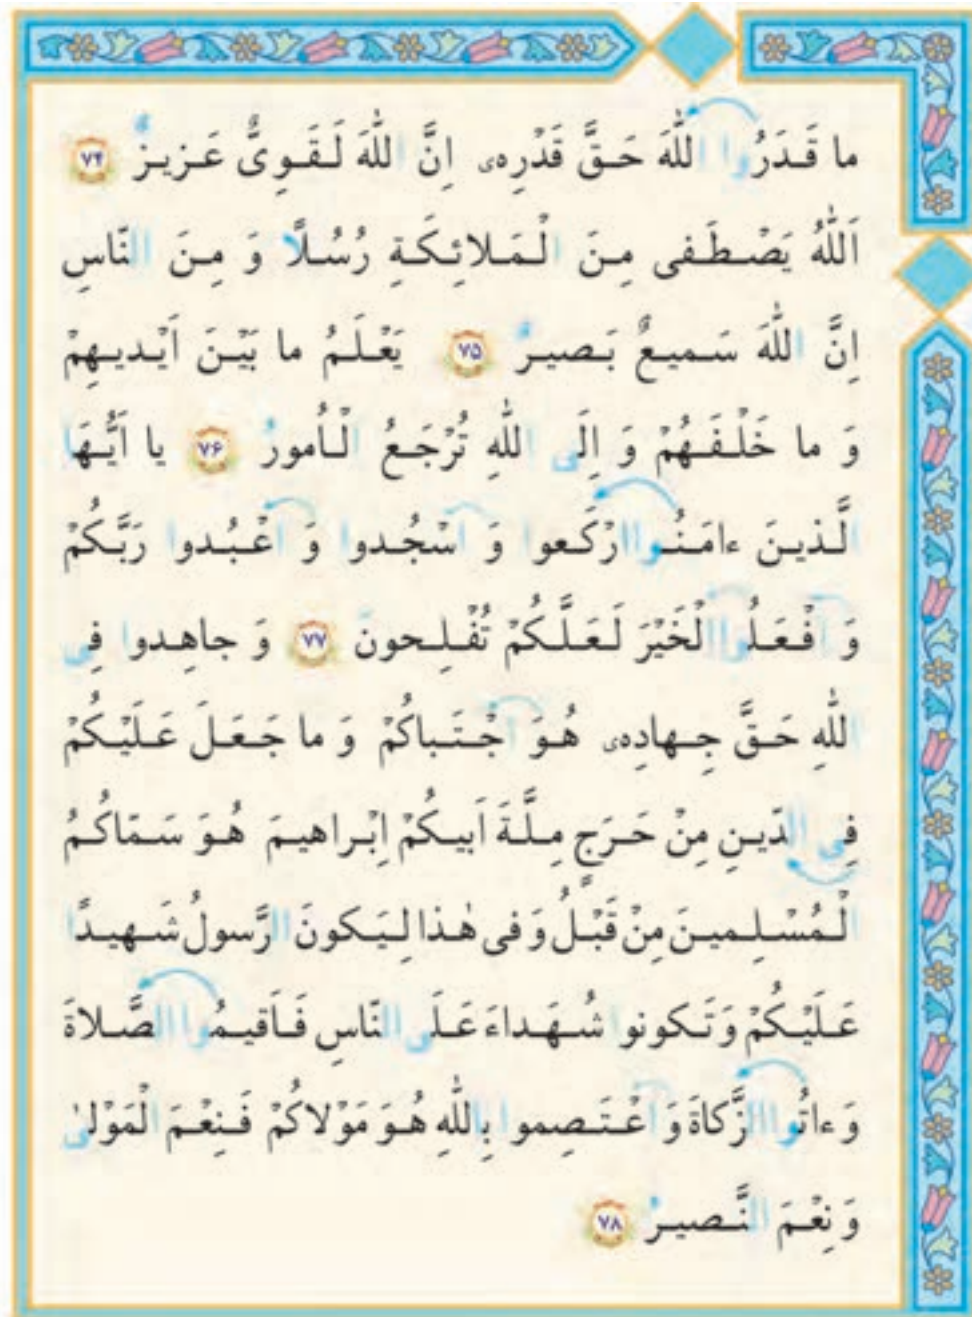 ما قَدَرُوا اللّٰهَ حَقَّ قَدْرِهۦ اِنَّ اللّٰهَ لَقَوِیٌّ عَزیزٌ ۷۴
اَللّٰهُ يَصْطَفی مِنَ الْمَلائِكَةِ رُسُلًا وَ مِنَ النّاسِ
اِنَّ اللّٰهَ سَمیعٌ بَصیرٌ ۷۵ يَعْلَمُ ما بَيْنَ اَيْدیهِمْ
وَ ما خَلْفَهُمْ وَ اِلَی اللّٰهِ تُرْجَعُ الْاُمورُ ۷۶ یا اَيُّهَا
الَّذینَ ءامَنُوا ارْكَعوا وَ اسْجُدوا وَ اعْبُدوا رَبَّكُمْ
وَ افْعَلُوا الْخَيْرَ لَعَلَّكُمْ تُفْلِحونَ ۷۷ وَ جاهِدوا فِی
اللّٰهِ حَقَّ جِهادِهۦ هُوَ اجْتَباكُمْ وَ ما جَعَلَ عَلَيْكُمْ
فِی الدّینِ مِنْ حَرَجٍ مِلَّةَ اَبیكُمْ اِبْراهیمَ هُوَ سَمّاكُمُ
الْمُسْلِمینَ مِنْ قَبْلُ وَ فی هٰذا لِيَكونَ الرَّسولُ شَهیدًا
عَلَيْكُمْ وَ تَكونوا شُهَداءَ عَلَی النّاسِ فَاَقیمُوا الصَّلاةَ
وَ ءاتُوا الزَّكاةَ وَ اعْتَصِموا بِاللّٰهِ هُوَ مَوْلاكُمْ فَنِعْمَ الْمَوْلیٰ
وَ نِعْمَ النَّصیرُ ۷۸